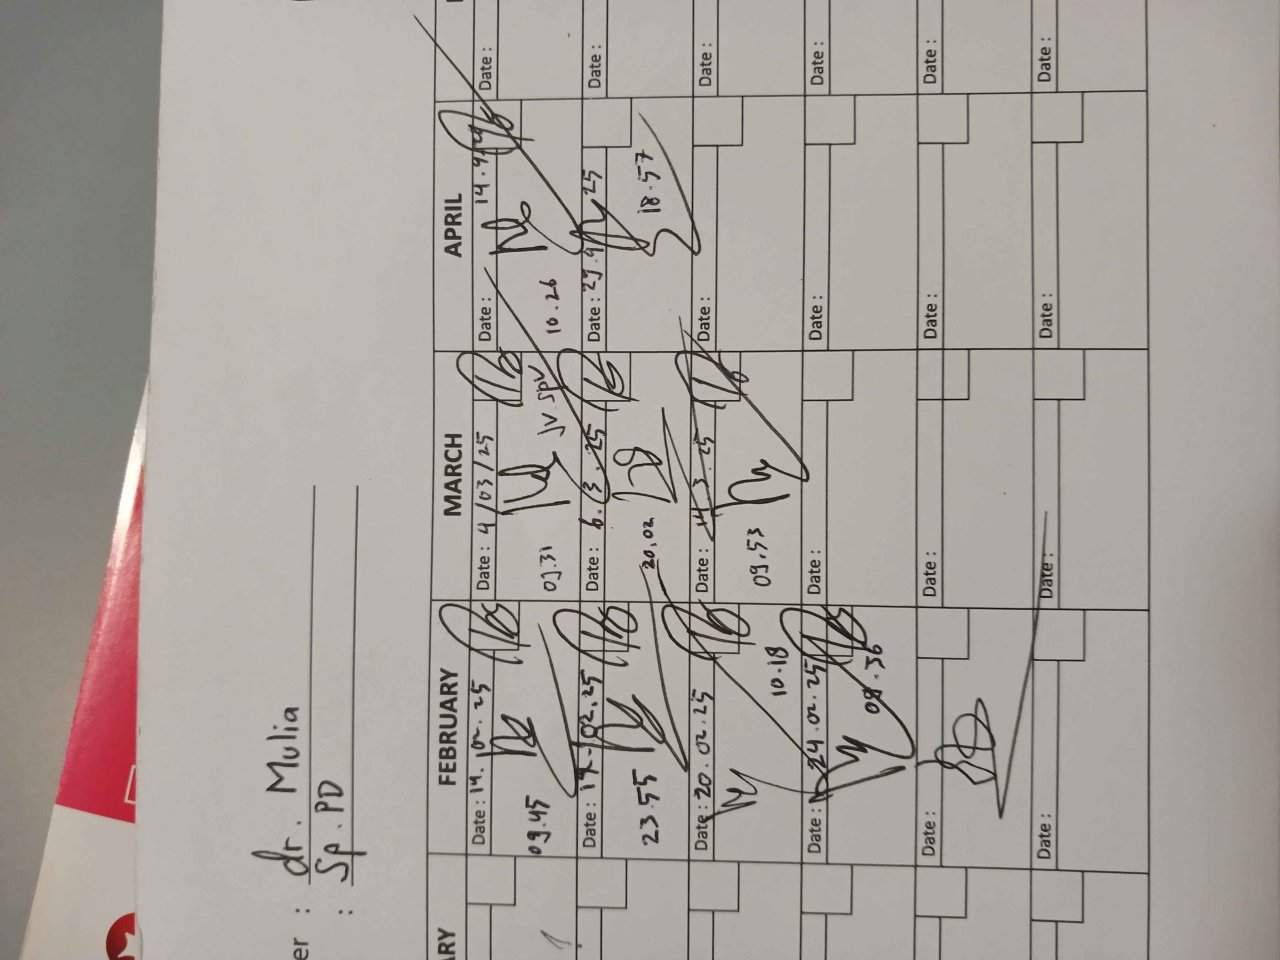 er : dr. Mulia
: Sp. PD
ARY
FEBRUARY
Date : 14.02.25
09.45
Date : 14.02.25
23.55
Date : 20.02.25
10.18
Date : 24.02.25
09.36
Date :
Date :
MARCH
Date : 4/03/25
09.31
Date : 6.3.25
20.02
Date : 14.3.25
09.53
Date :
Date :
Date :
APRIL
Date : 14.4.25
10.26
Date : 29.4.25
18.57
Date :
Date :
Date :
Date :
Date :
Date :
Date :
Date :
Date :
Date :